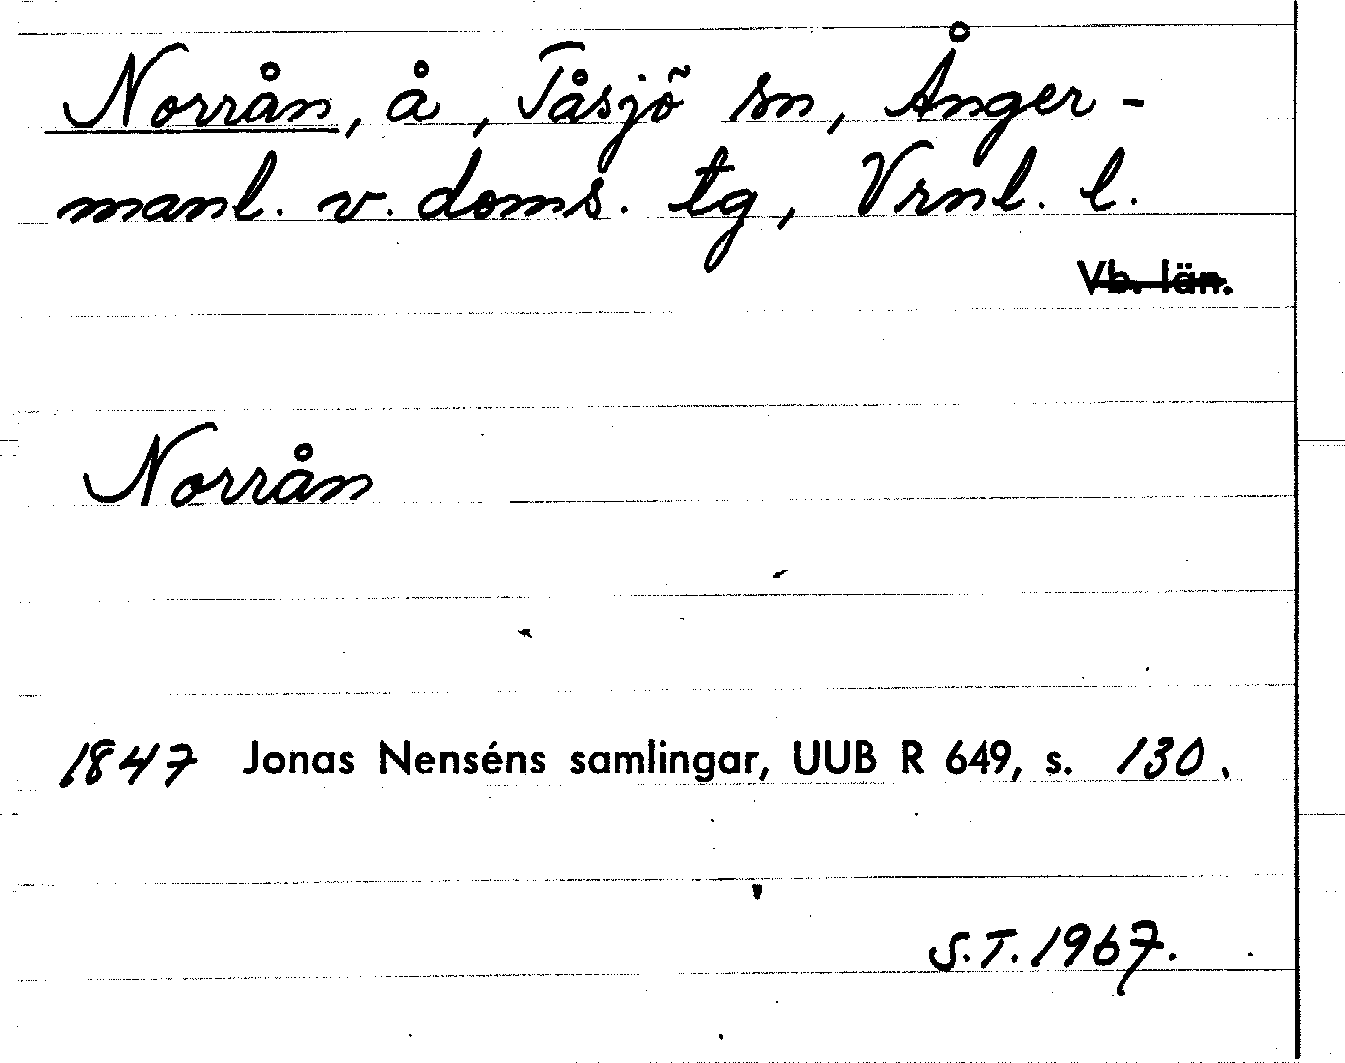 Norrån, å, Tåsjö sn, Ånger-
manl. v. doms. tg, Vrnl. l.
Vb. län.
Norrån
1847 Jonas Nenséns samlingar, UUB R 649, s. 130.
S.T. 1967.